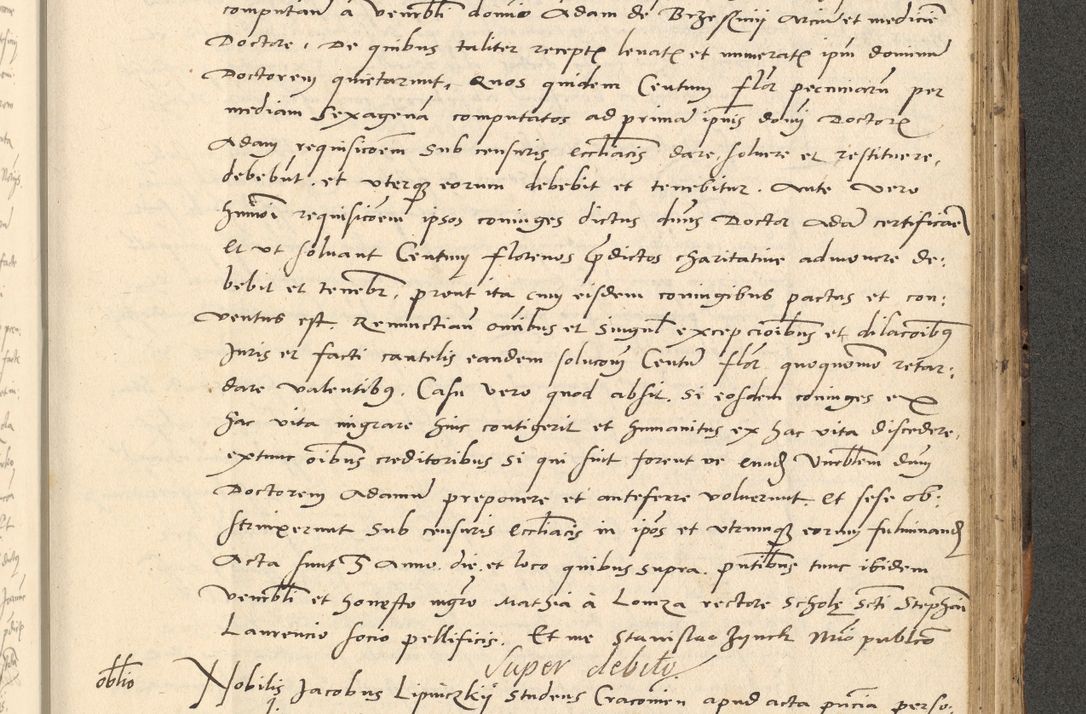 computan̄ a Venrbl̄i domīo Adam de Brzesznij Arciū et medicīe
Doctore, De quibus taliter recept͛ levat͛ et numerat͛ ipm̄ dominū
Doctorem quietarunt, Quos quidem Centum flōr pecuniarū per
mediam Sexagenā computatos ad primā ipīus dom̄j Doctor͛
Adam requisicōem sub censuris eccl̄iacis dare, solvere et restituere,
debebūt, et uterq̄ eorum debebit et tenebitur. Ante vero
hmōi requisicōem ipsos coniuges dictus dn̄s Doctor Adā certificare
Et ut solvant Centum florenos p̄dictos charitative admonere de:
bebit et tenebr̄, prout ita cum eisdem coniugibus pactus et con:
ventus est. Renunctian̄ om̄ibus et singul̄ excepcioībus et dilacoībq̄
Juris et facti cautelis eandem solucōm Centū flōr quoquomō retar:
dare valentibq̄. Casu vero quod absit, Si eosdem coniuges ex
hac vita migrare huic contigerit et humanitus ex hac vita discedere,
extunc oībus creditoribus si qui fuīt forent ve eundȩ Venrbl̄em dūm
Doctorem Adamū preponere et anteferre voluerunt. Et sese ob:
strinxerunt sub censuris eccl̄iacis in ipōs et utrumq̄ eorum fulminandȩ
Acta sunt Anno, die, et loco quibus supra. pn̄tibus tunc ibidem
Venrbl̄i et honesto mgr̄o Mathia à Lomza rectore Scholȩ Scti Stephān̄i
Laurencio socio pellificis. Et me Stanislao Zynck Nrio publco
Super debito
obl̄io Nobilis Jacobus Lipniczkij Studens Cracouien̄ apud acta pn̄cia perso: